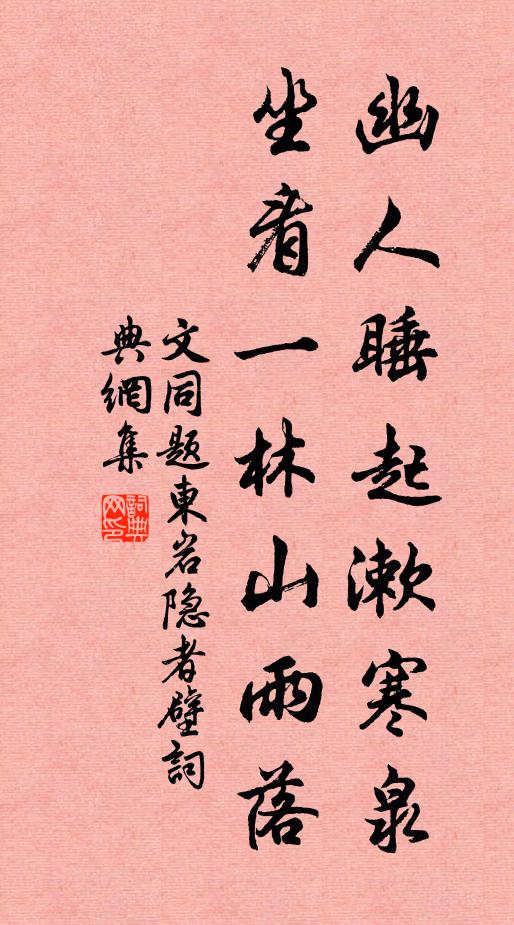 幽人睡起漱寒泉
坐看一林山雨落
文同題東岩隐者壁詞
典網集
詞典网印